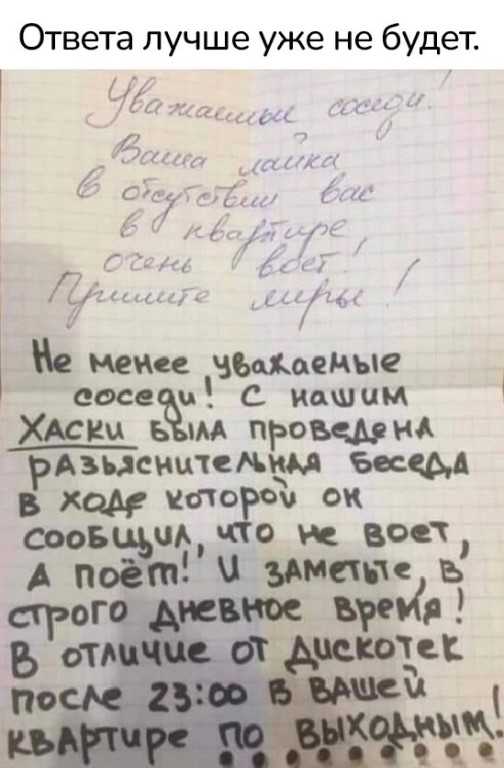 Ответа лучше уже не будет.
Уважаемые соседи!
Ваша лайка
в отсутствии вас
в квартире,
очень воет!
Примите меры!
Не менее уважаемые
соседи! С нашим
ХАСКИ БЫЛА проведенА
рАзъяснителЬнАя беседА
в ходе которой он
сообщил, что не воет,
А поёт! И зАметьте, в
строго дневное время!
В отличие от дискотек
после 23:00 в вАшей
квАртире по выходным!